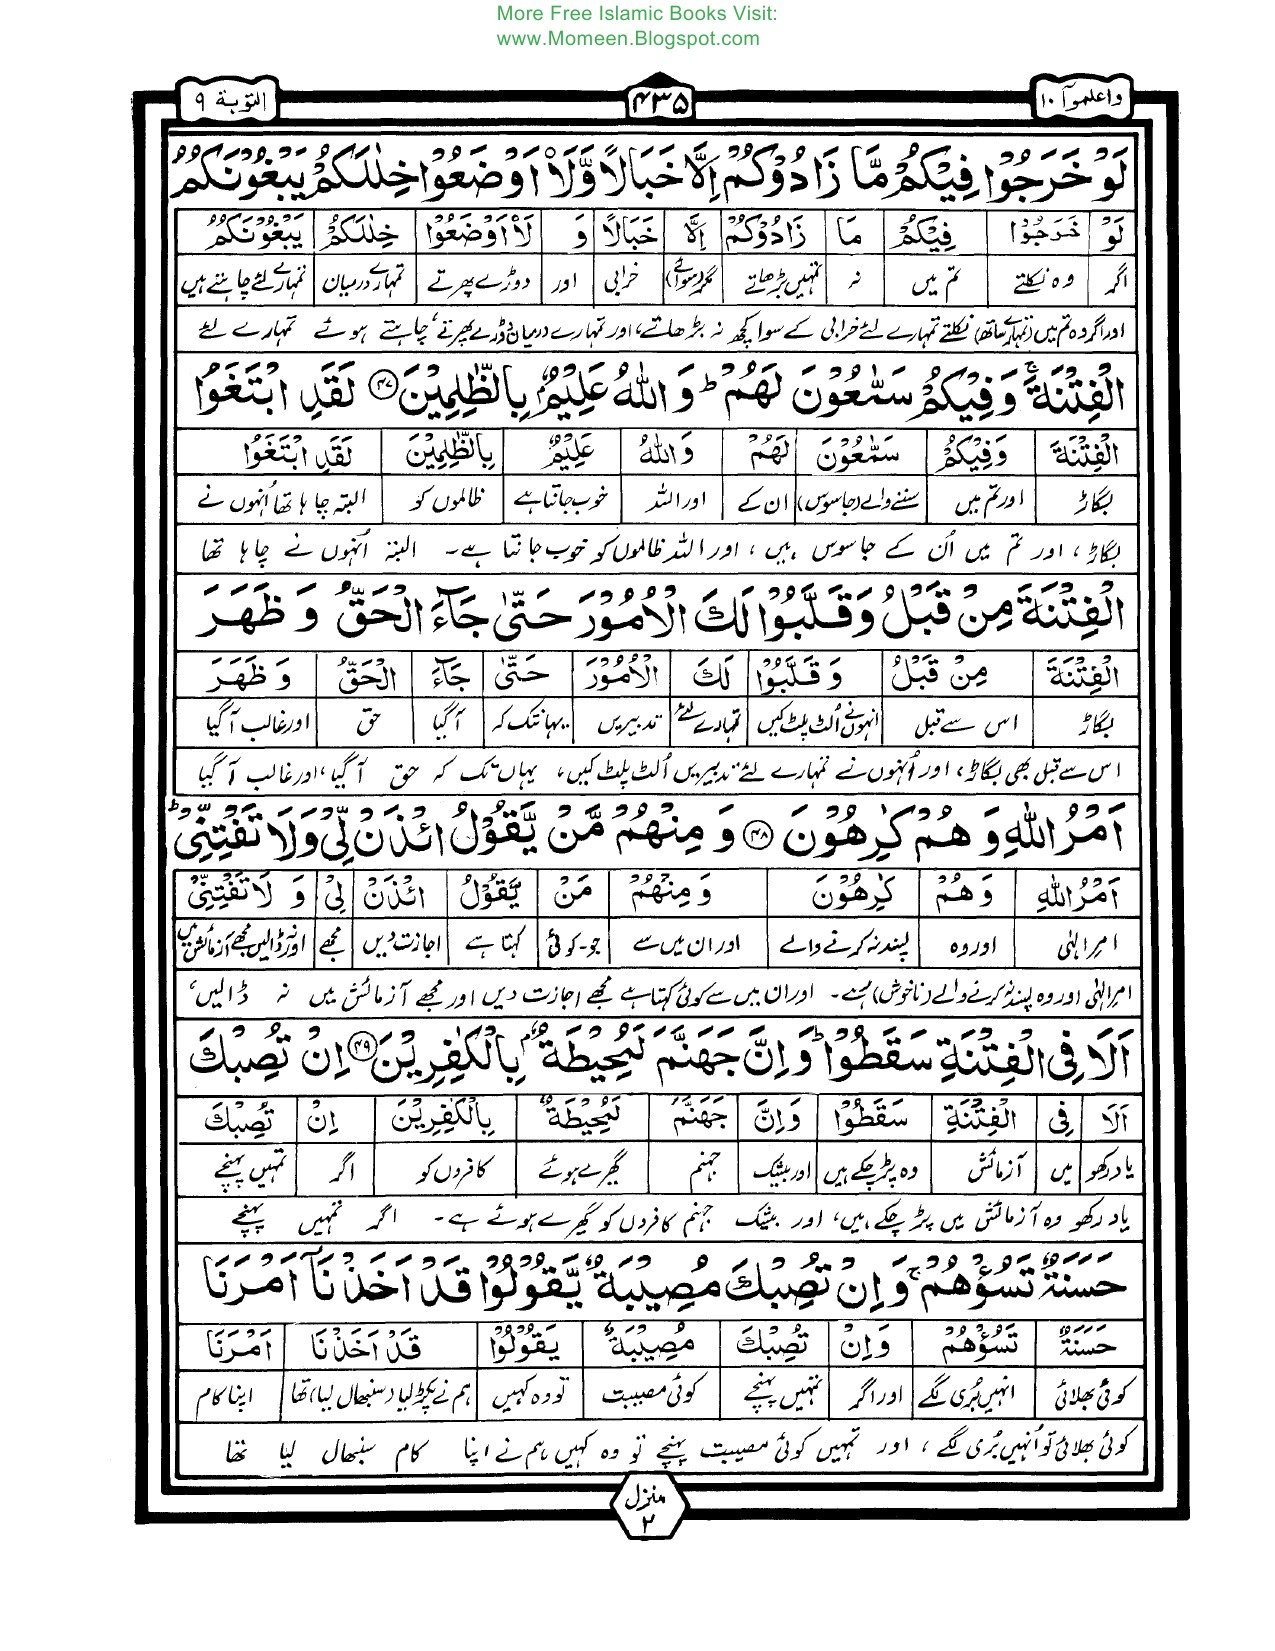 More Free Islamic Books Visit:
www.Momeen.Blogspot.com
واعلموٓا ١٠
۴۳۵
التوبة ٩
لَوْ خَرَجُوْا فِيْكُمْ مَّا زَادُوْكُمْ اِلَّا خَبَالًا وَّلَا۟اَوْضَعُوْا خِلٰلَكُمْ يَبْغُوْنَكُمُ
لَوْ خَرَجُوْا فِيْكُمْ مَا زَادُوْكُمْ اِلَّا خَبَالًا وَ لَا۟اَوْضَعُوْا خِلٰلَكُمْ يَبْغُوْنَكُمْ
اگر وہ نکلتے تم میں نہ تمہیں بڑھاتے مگر (سوائے) خرابی اور دوڑے پھرتے تمہارے درمیان تمہارے لئے چاہتے ہیں
اور اگر وہ تم میں (تمہارے ساتھ) نکلتے تمہارے لئے خرابی کے سوا کچھ نہ بڑھاتے، اور تمہارے درمیان دوڑے پھرتے، چاہتے ہوئے تمہارے لئے
الْفِتْنَةَ ۚ وَفِيْكُمْ سَمّٰعُوْنَ لَهُمْ ؕ وَاللّٰهُ عَلِيْمٌۢ بِالظّٰلِمِيْنَ ۴۷ لَقَدِ ابْتَغَوُا
الْفِتْنَةَ وَفِيْكُمْ سَمّٰعُوْنَ لَهُمْ وَاللّٰهُ عَلِيْمٌۢ بِالظّٰلِمِيْنَ لَقَدِ ابْتَغَوُا
بگاڑ اور تم میں سننے والے (جاسوس) ان کے اور اللہ خوب جانتا ہے ظالموں کو البتہ چاہا تھا اُنہوں نے
بگاڑ، اور تم میں اُن کے جاسوس ہیں، اور اللہ ظالموں کو خوب جانتا ہے۔ البتہ اُنہوں نے چاہا تھا
الْفِتْنَةَ مِنْ قَبْلُ وَقَلَّبُوْا لَكَ الْاُمُوْرَ حَتّٰى جَآءَ الْحَقُّ وَظَهَرَ
الْفِتْنَةَ مِنْ قَبْلُ وَقَلَّبُوْا لَكَ الْاُمُوْرَ حَتّٰى جَآءَ الْحَقُّ وَظَهَرَ
بگاڑ اس سے قبل انہوں نے اُلٹ پلٹ کیں تمہارے لئے تدبیریں یہانتک کہ آگیا حق اور غالب آگیا
اس سے قبل بھی بگاڑ، اور اُنہوں نے تمہارے لئے تدبیریں اُلٹ پلٹ کیں، یہاں تک کہ حق آگیا، اور غالب آگیا
اَمْرُ اللّٰهِ وَهُمْ كٰرِهُوْنَ ۴۸ وَمِنْهُمْ مَّنْ يَّقُوْلُ ائْذَنْ لِّيْ وَلَا تَفْتِنِّيْ ؕ
اَمْرُ اللّٰهِ وَهُمْ كٰرِهُوْنَ وَمِنْهُمْ مَنْ يَّقُوْلُ ائْذَنْ لِيْ وَلَا تَفْتِنِّيْ
امر الٰہی اور وہ پسند نہ کرنے والے اور ان میں سے جو۔کوئی کہتا ہے اجازت دیں مجھے اور نہ ڈالیں مجھے آزمائش میں
امر الٰہی اور وہ پسند نہ کرنے والے (ناخوش) رہے۔ اور ان میں سے کوئی کہتا ہے مجھے اجازت دیں اور مجھے آزمائش میں نہ ڈالیں،
اَلَا فِي الْفِتْنَةِ سَقَطُوْا ؕ وَاِنَّ جَهَنَّمَ لَمُحِيْطَةٌۢ بِالْكٰفِرِيْنَ ۴۹ اِنْ تُصِبْكَ
اَلَا فِي الْفِتْنَةِ سَقَطُوْا وَاِنَّ جَهَنَّمَ لَمُحِيْطَةٌۢ بِالْكٰفِرِيْنَ اِنْ تُصِبْكَ
یاد رکھو میں آزمائش وہ پڑ چکے ہیں اور بیشک جہنم گھیرے ہوئے کافروں کو اگر تمہیں پہنچے
یاد رکھو وہ آزمائش میں پڑ چکے ہیں، اور بیشک جہنم کافروں کو گھیرے ہوئے ہے۔ اگر تمہیں پہنچے
حَسَنَةٌ تَسُؤْهُمْ ۚ وَاِنْ تُصِبْكَ مُصِيْبَةٌ يَّقُوْلُوْا قَدْ اَخَذْنَآ اَمْرَنَا
حَسَنَةٌ تَسُؤْهُمْ وَاِنْ تُصِبْكَ مُصِيْبَةٌ يَقُوْلُوْا قَدْ اَخَذْنَا اَمْرَنَا
کوئی بھلائی انہیں بُری لگے اور اگر تمہیں پہنچے کوئی مصیبت تو وہ کہیں ہم نے پکڑ لیا (سنبھال لیا) تھا اپنا کام
کوئی بھلائی تو اُنہیں بُری لگے، اور تمہیں کوئی مصیبت پہنچے تو وہ کہیں ہم نے اپنا کام سنبھال لیا تھا
منزل
۲